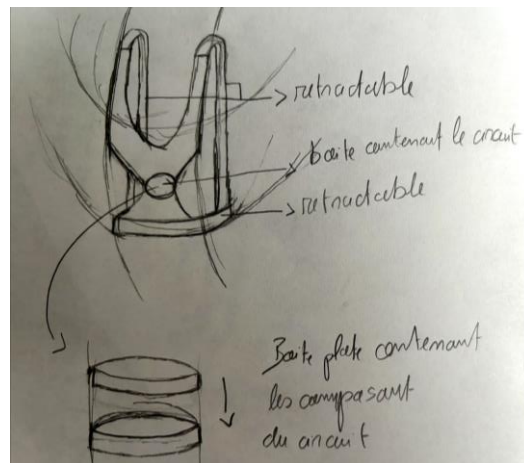 retractable
boite contenant le circuit
retractable
Boite plate contenant
les composant
du circuit